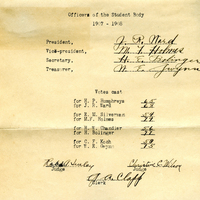 Officers of the Student Body
1907 - 1908
President, J. R. Ward
Vice-president, M. F. Holmes
Secretary, H. E. Bolinger
Treasurer, W. E. Gwynn
Votes cast
for E. P. Humphreys
for J. R. Ward
for E. M. Silverman
for M.F. Holmes
for Chandler
for H. Bolinger
for C. F. Koch
for W. E. Gwynn
Judge
Judge
J. A. Clapp
Clerk